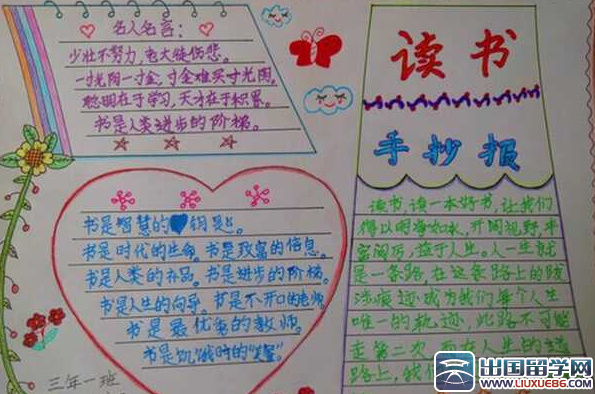 名人名言:
少壮不努力,老大徒伤悲。
一寸光阴一寸金,寸金难买寸光阴。
聪明在于学习,天才在于积累。
书是人类进步的阶梯。
读书
手抄报
书是智慧的钥匙。
书是时代的生命。书是致富的信息。
书是人类的补品。书是进步的阶梯。
书是人生的向导。书是不开口的老师
书是最优秀的教师。
书是饥饿时的
三年一班
读书,读一本好书,让我们
得以明净如水,开阔视野,丰
富阅历,益于人生。人一生就
是一条路,在这条路上的跋
涉痕迹成为我们每个人生
唯一的轨迹,此路不可能
走第二次,而在人生的
路上,我
出国留学网
WWW.LIUXUE86.COM